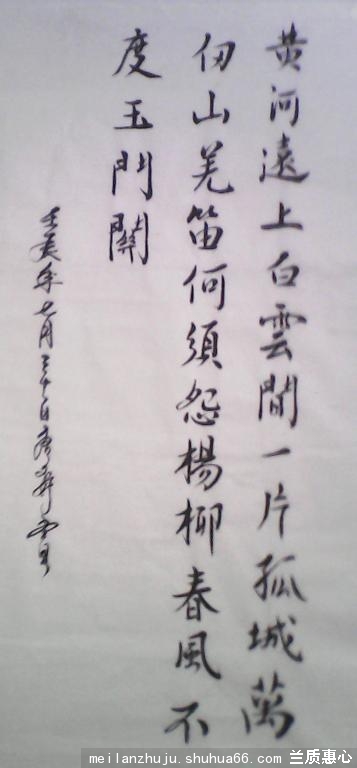 黄河遠上白雲間一片孤城萬
仞山羌笛何須怨楊柳春風不
度玉門關
年七月三十日
meilanzhuju.shuhua66.com/兰质惠心